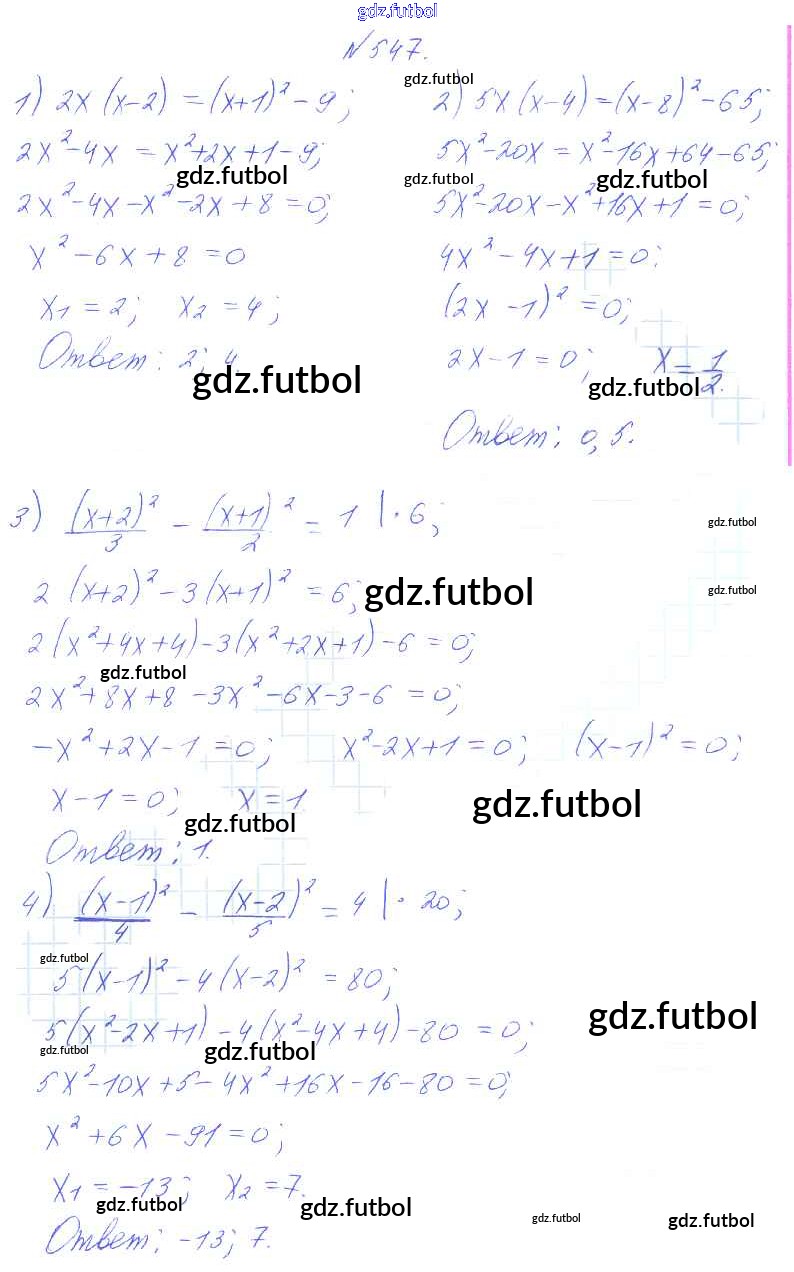 gdz.futbol
№547.
1) 2x(x-2) = (x+1)² - 9;
gdz.futbol
2x² - 4x = x² + 2x + 1 - 9;
gdz.futbol
2x² - 4x - x² - 2x + 8 = 0;
x² - 6x + 8 = 0
x₁ = 2; x₂ = 4;
Ответ: 2; 4
gdz.futbol
2) 5x(x-4) = (x-8)² - 65;
5x² - 20x = x² - 16x + 64 - 65;
gdz.futbol gdz.futbol
5x² - 20x - x² + 16x + 1 = 0;
4x² - 4x + 1 = 0:
(2x - 1)² = 0;
2x - 1 = 0; x = 1/2.
gdz.futbol
Ответ: 0,5.
3) (x+2)²/3 - (x+1)²/2 = 1 |· 6;
gdz.futbol
2(x+2)² - 3(x+1)² = 6;
gdz.futbol gdz.futbol
2(x² + 4x + 4) - 3(x² + 2x + 1) - 6 = 0;
gdz.futbol
2x² + 8x + 8 - 3x² - 6x - 3 - 6 = 0;
-x² + 2x - 1 = 0; x² - 2x + 1 = 0; (x-1)² = 0;
x - 1 = 0; x = 1.
gdz.futbol gdz.futbol
Ответ: 1.
4) (x-1)²/4 - (x-2)²/5 = 4 |· 20;
gdz.futbol
5(x-1)² - 4(x-2)² = 80;
gdz.futbol
5(x² - 2x + 1) - 4(x² - 4x + 4) - 80 = 0;
gdz.futbol gdz.futbol
5x² - 10x + 5 - 4x² + 16x - 16 - 80 = 0;
x² + 6x - 91 = 0;
x₁ = -13; x₂ = 7.
gdz.futbol gdz.futbol gdz.futbol gdz.futbol
Ответ: -13; 7.